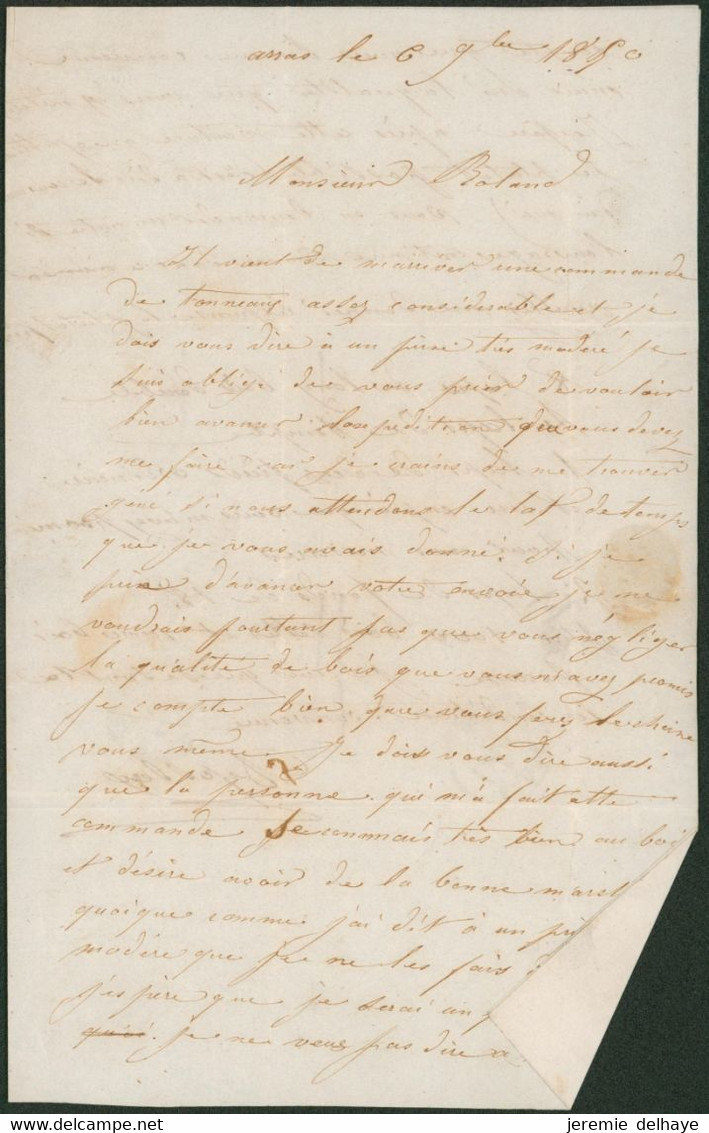 arras le 6 9bre 1850
Monsieur Roland
Il vient de marriver une commande
de tonneaux assez considerable et je
dois vous dire à un prix très modéré je
suis obligé de vous prier de vouloir
bien avancer lexpédition que vous devez
me faire car je crains de me trouver
gené si nous attendons le laf de temps
que je vous avais donné. Si je
prie d'avancer votre envoie je ne
voudrais pourtant pas que vous négliger
la qualité de bois que vous m'avez promis
je compte bien que vous ferez le chaine
vous même. Je dois vous dire aussi
que la personne qui m'a fait cette
commande se connais très bien au bois
et désire avoir de la bonne march
quoique comme j'ai dit à un pri
modéré que je ne les fais
j'espère que je serai un
je ne veux pas dire a
jeremie delhaye